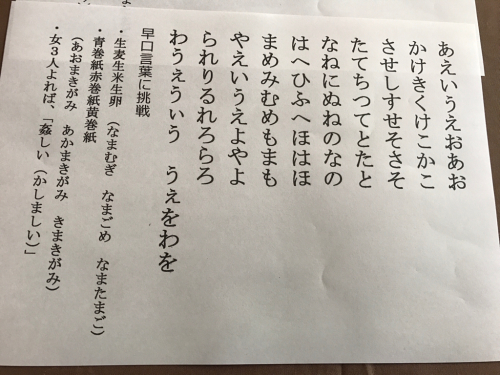 あえいうえおあお
かけきくけこかこ
させしすせそさそ
たてちつてとたと
なねにぬねのなの
はへひふへほはほ
まめみむめもまも
やえいうえよやよ
られりるれろらろ
わうぇうぃう　うぇをわを
早口言葉に挑戦
・生麦生米生卵　（なまむぎ　なまごめ　なまたまご）
・青巻紙赤巻紙黄巻紙
（あおまきがみ　あかまきがみ　きまきがみ）
・女３人よれば、「姦しい（かしましい）」